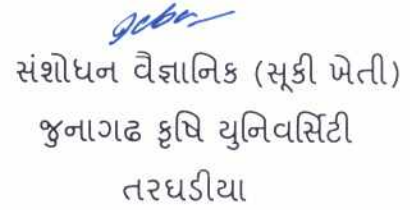 સંશોધન વૈજ્ઞાનિક (સૂકી ખેતી)
જુનાગઢ કૃષિ યુનિવર્સિટી
તરઘડીયા